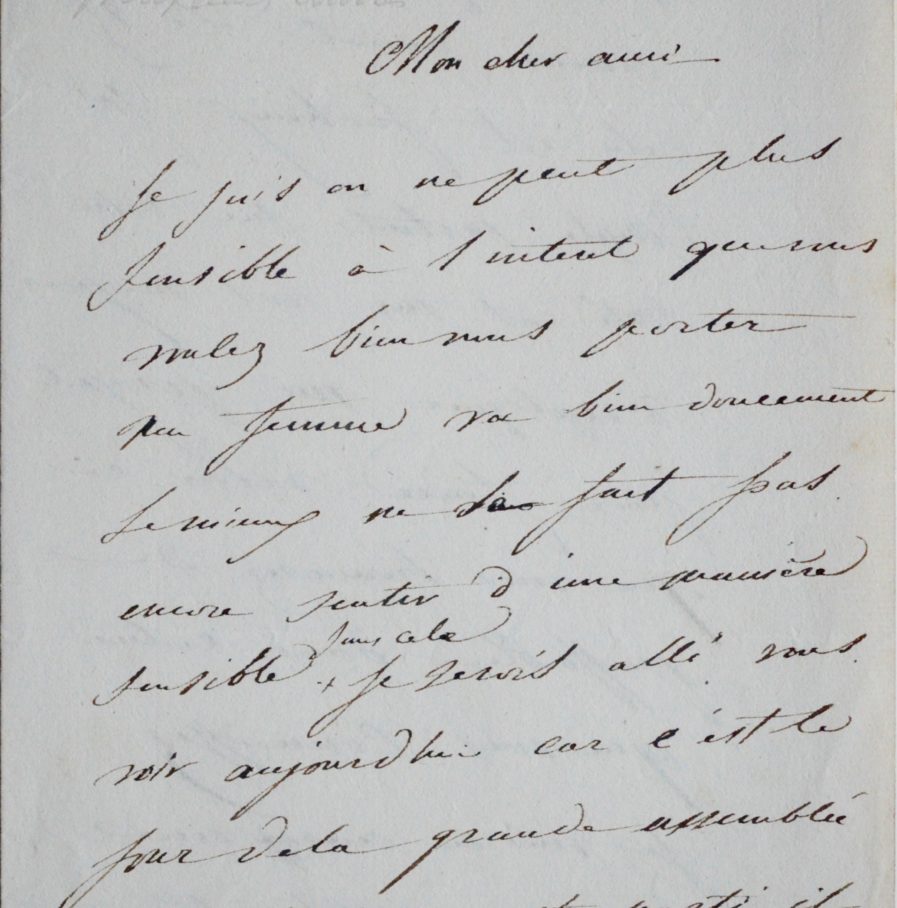 Mon cher ami
Je suis on ne peut plus
sensible à l'interet que vous
voulez bien nous porter
ma femme va bien doucement
le mieux ne se fait pas
encore sentir d'une manière
sans cela
sensible + je serois allé vous
voir aujourdhui car c'est le
jour de la grande assemblée